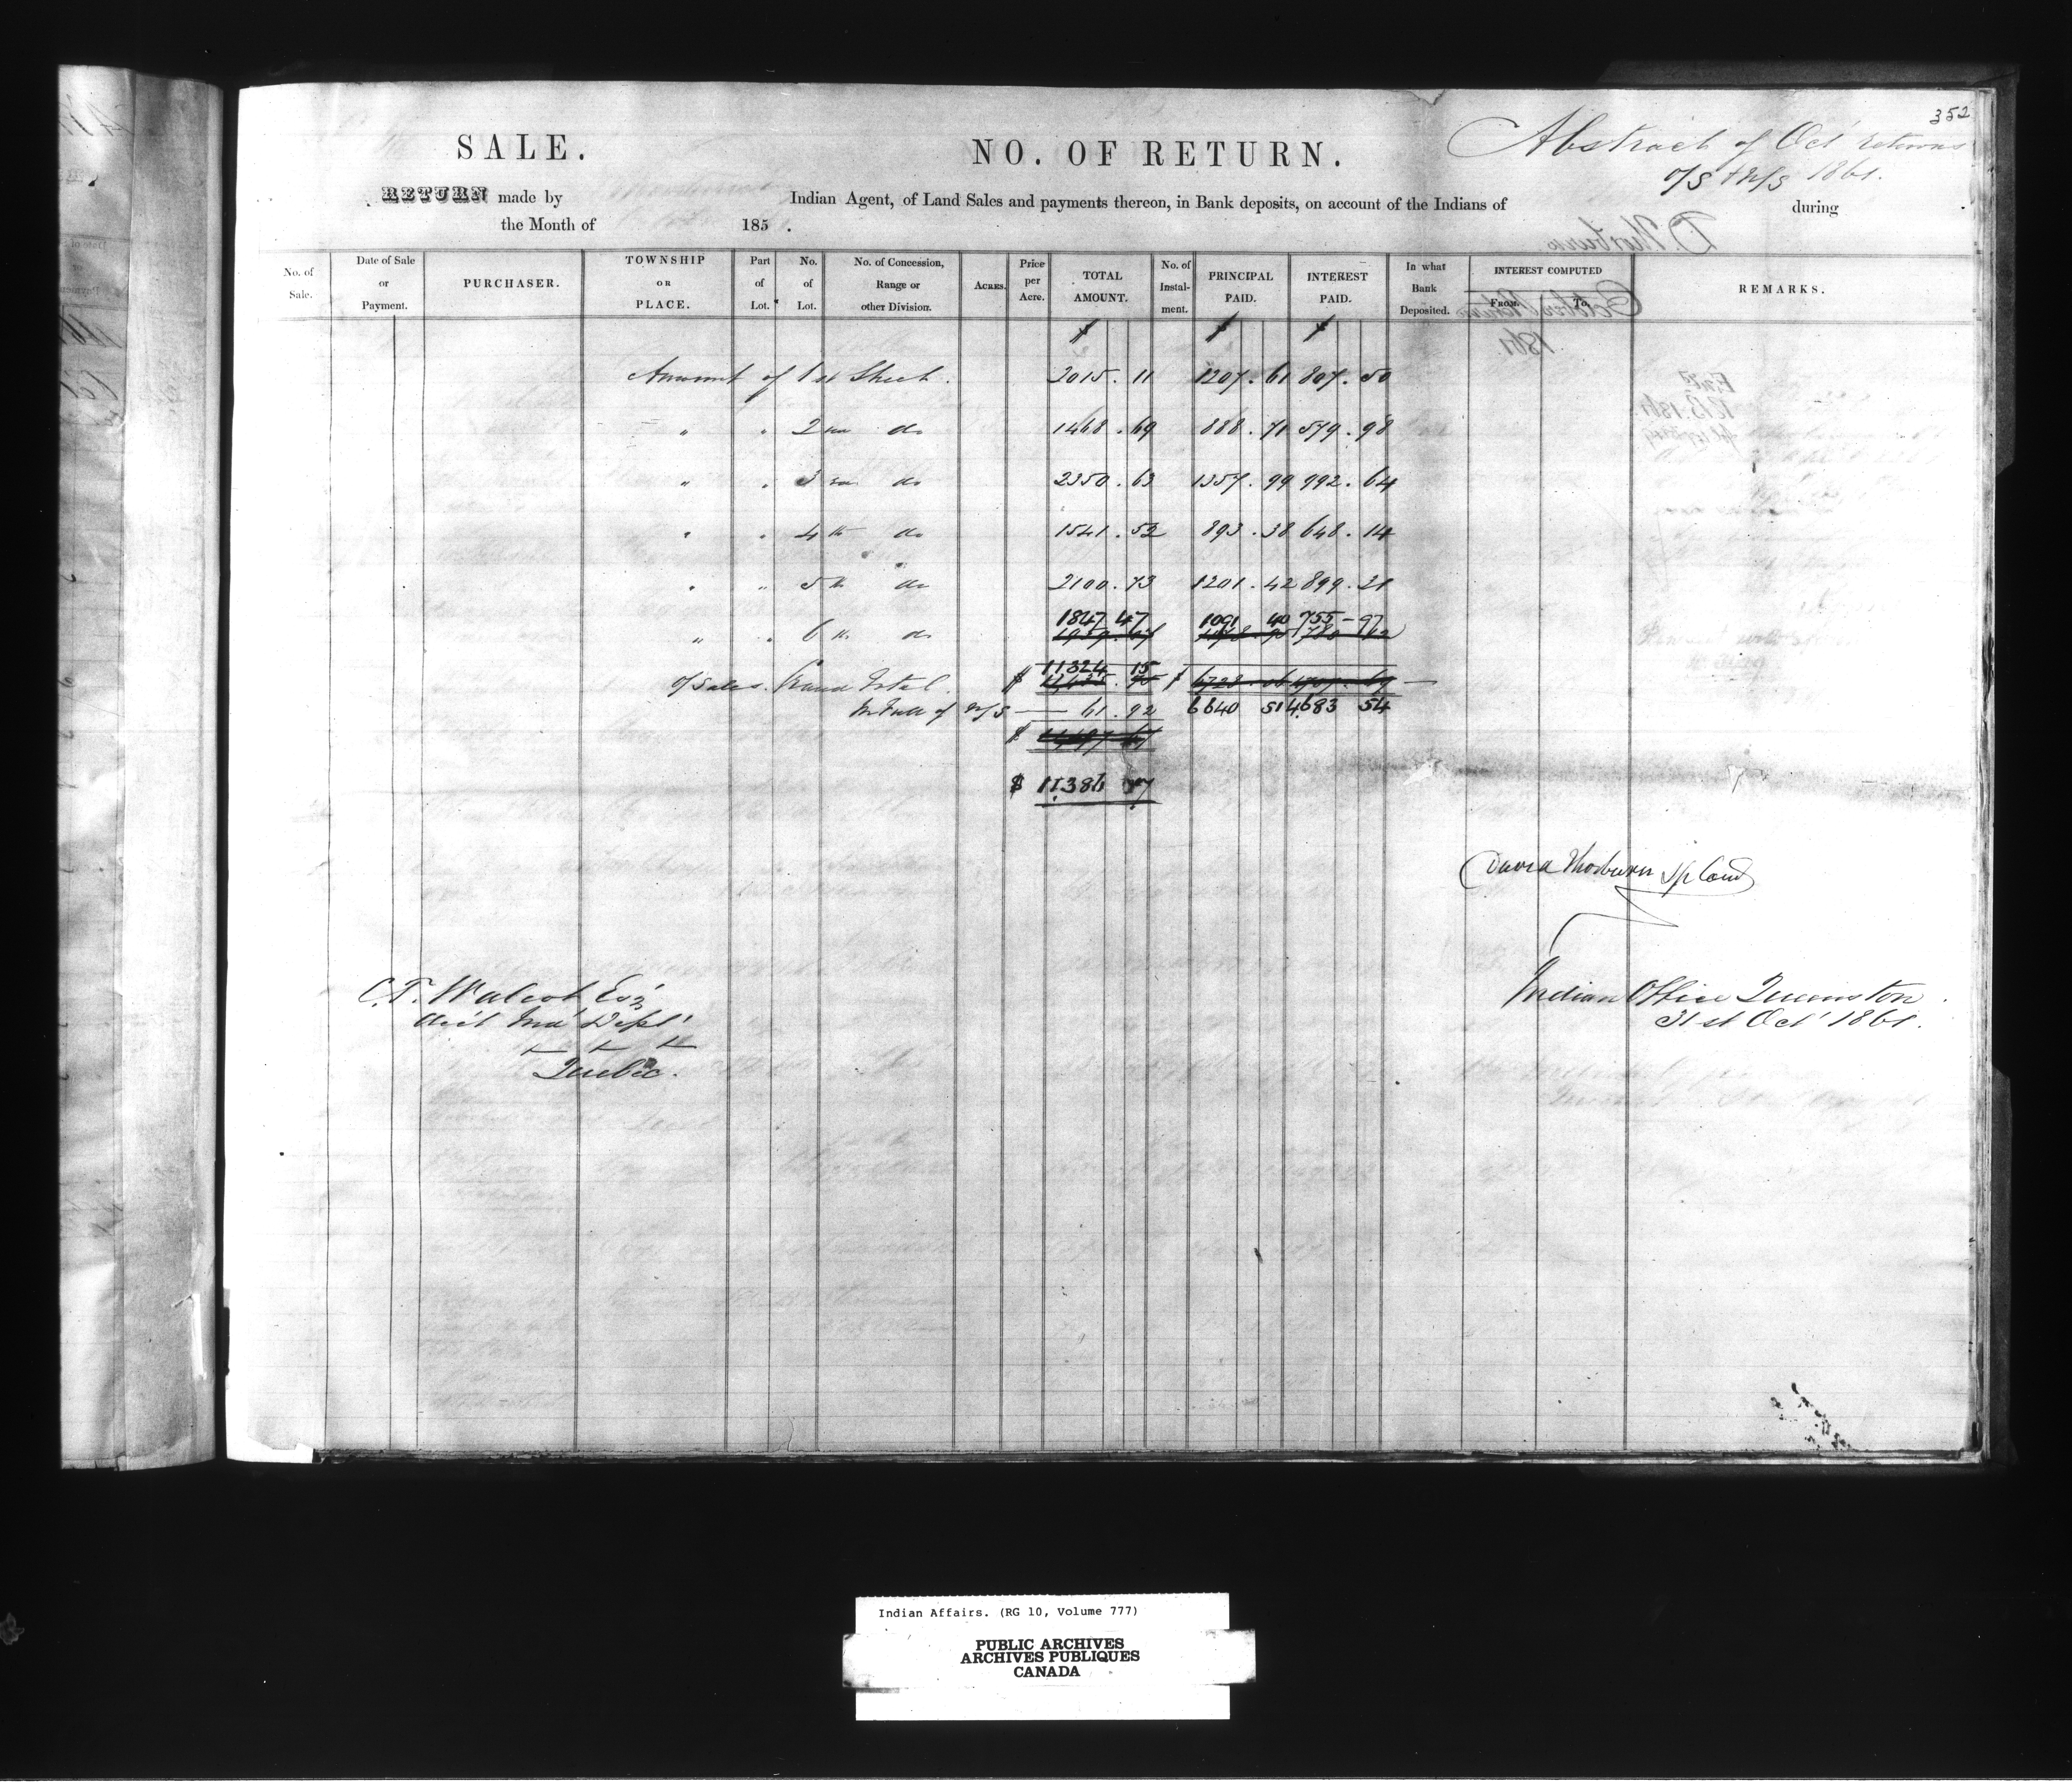 352
Abstract of Oct' Returns
O/S & N/S 1861.
SALE. NO. OF RETURN.
RETURN made by Indian Agent, of Land Sales and payments thereon, in Bank deposits, on account of the Indians of during
the Month of 185 .
No. of Sale. Date of Sale or Payment. PURCHASER. TOWNSHIP OR PLACE. Part of Lot. No. of Lot. No. of Concession, Range or other Division. Acres. Price per Acre. TOTAL AMOUNT. No. of Instal-ment. PRINCIPAL PAID. INTEREST PAID. In what Bank Deposited. INTEREST COMPUTED From. To. REMARKS.
$ $ $
Amount of 1st Sheet. 2015.11 1207.61 807.50
" " 2nd do 1468.69 888.71 579.98
" " 3rd do 2350.63 1357.99 992.64
" " 4th do 1541.52 893.38 648.14
" " 5th do 2100.73 1201.42 899.31
1847 47 1091 40 755-97
" " 6th do
11324 15
O/Sales. Grand Total. $ $ 6728.06 4707.69
In Full of N/S — 61.92 6640 51 4683 54
$
$ 11386 07
David Thorburn Sp Com
Indian Office Queenston
31st Oct' 1861.
C.T. Walcot Esq'r
Acc't Ind' Dept'
Quebec.
D. Thorburn
October Return
1861
Indian Affairs. (RG 10, Volume 777)
PUBLIC ARCHIVES
ARCHIVES PUBLIQUES
CANADA